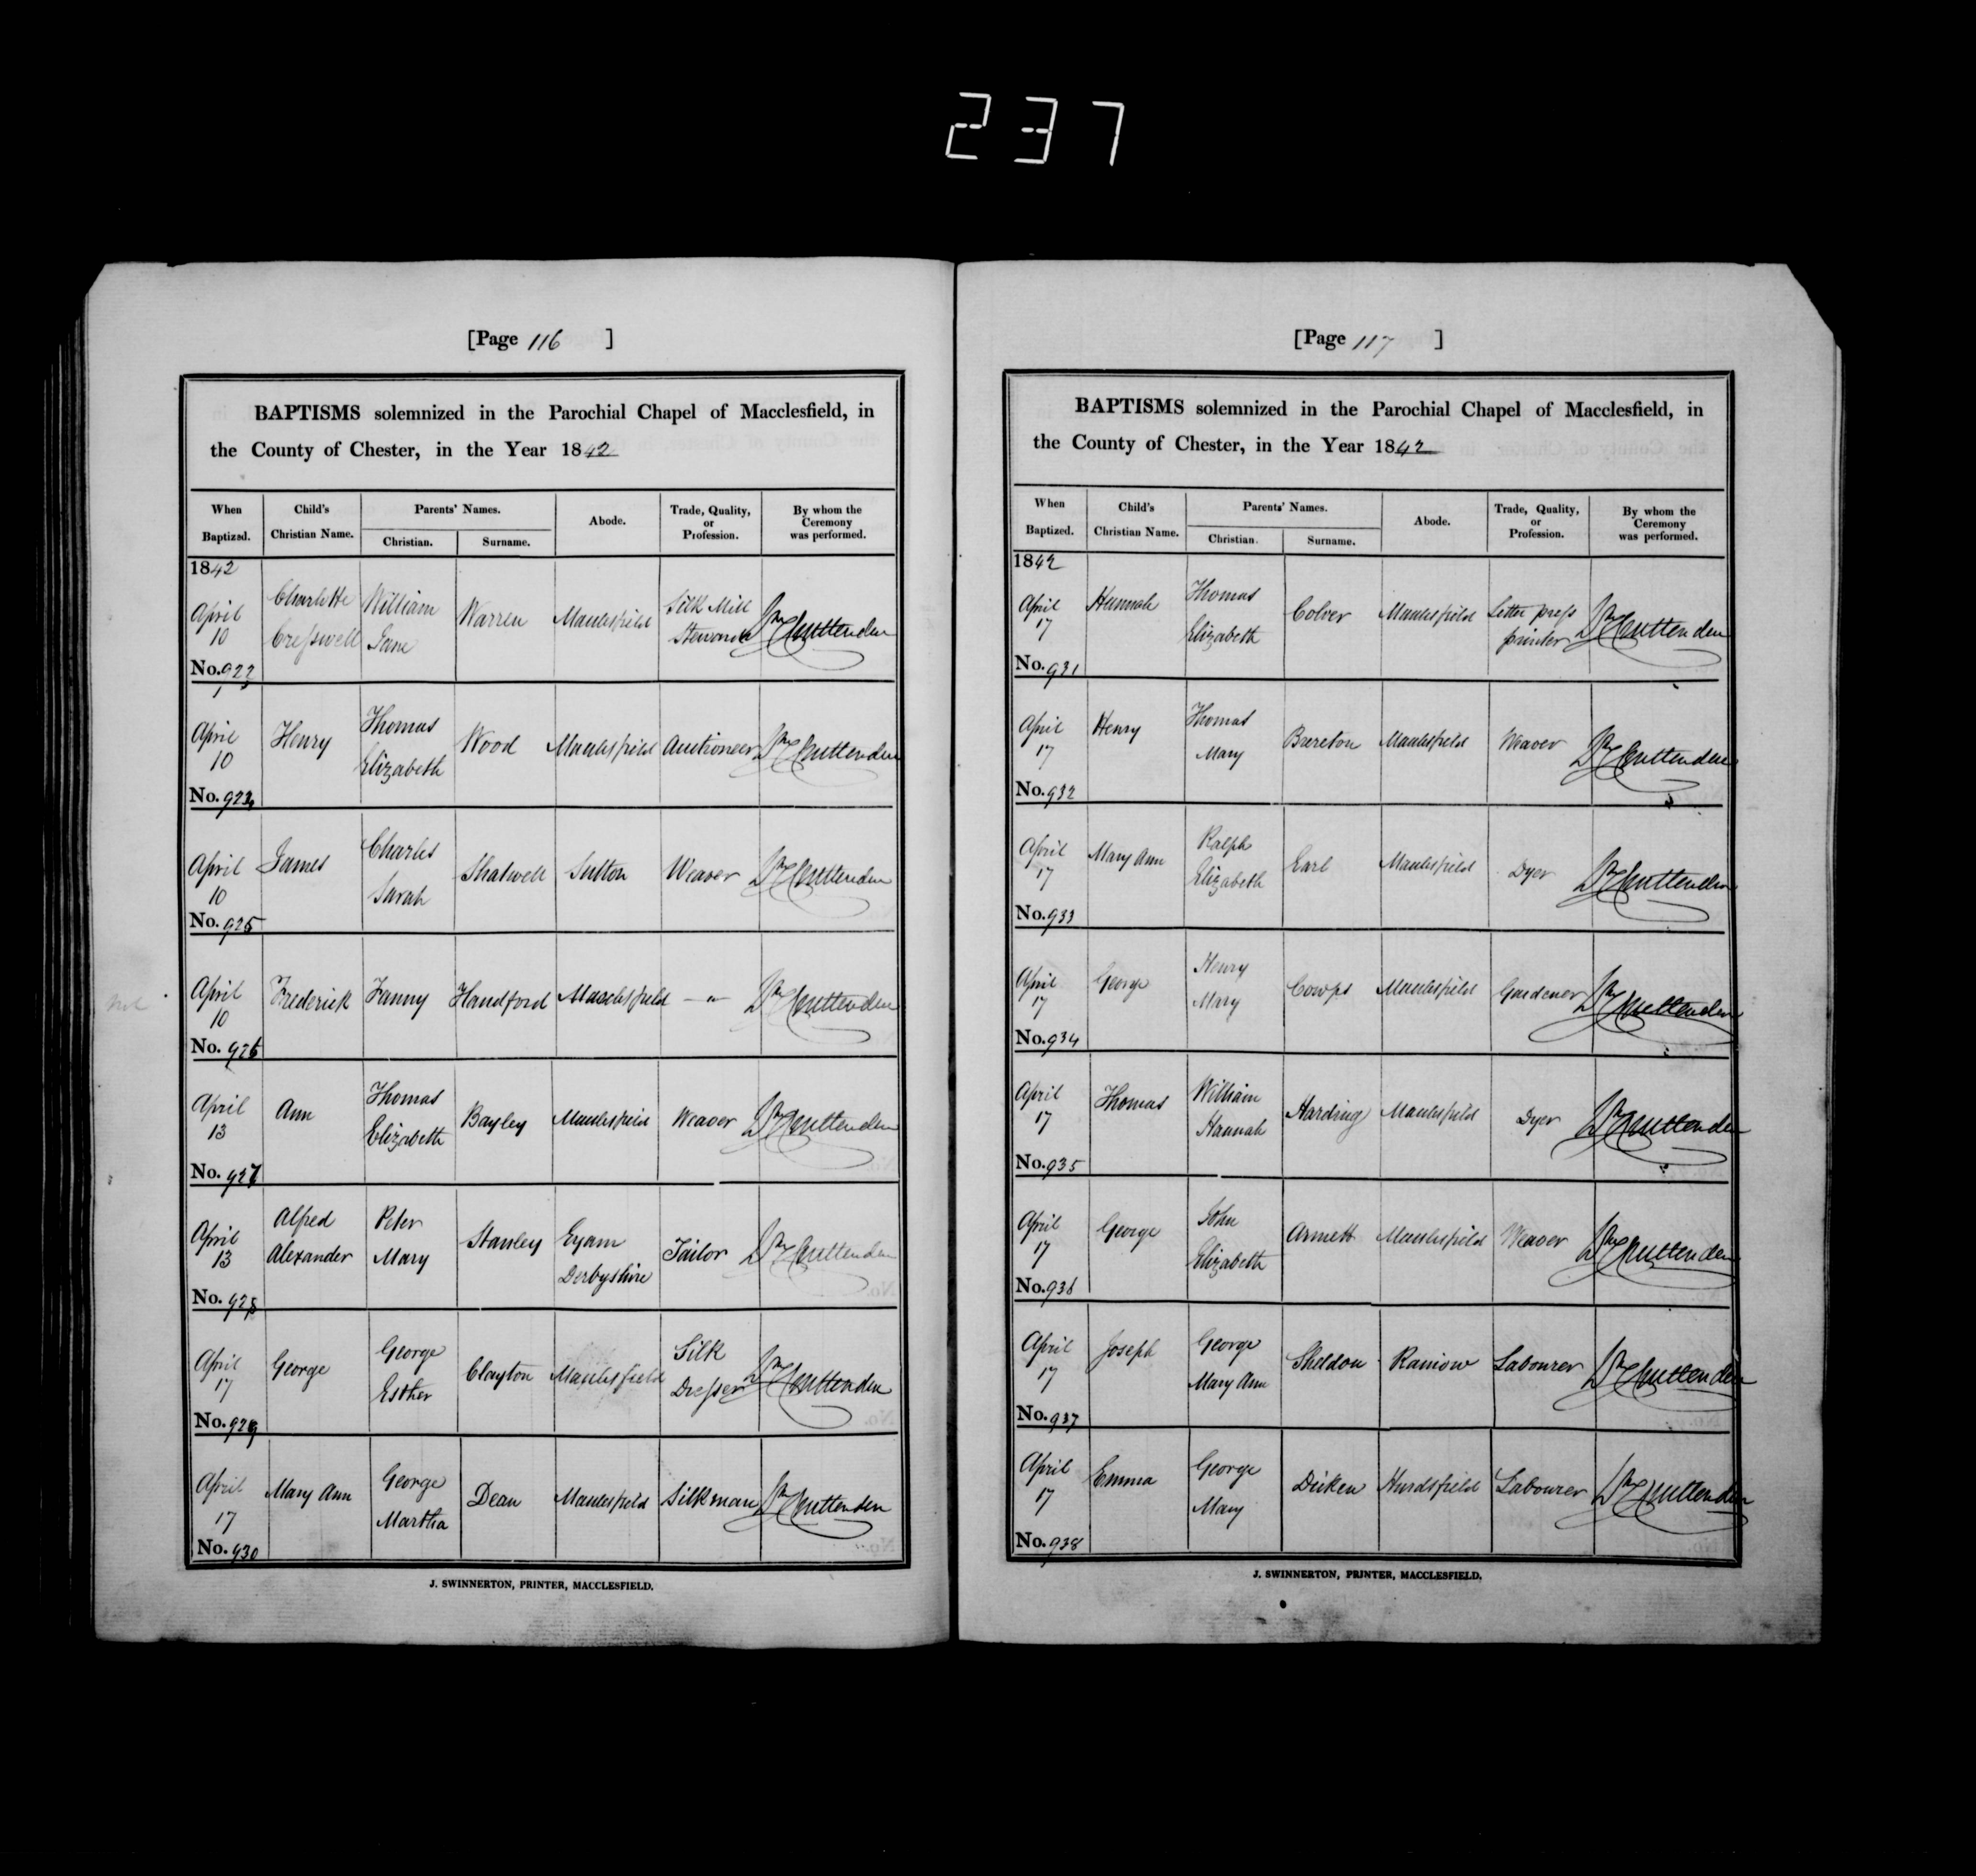 237
[Page 116 ]
BAPTISMS solemnized in the Parochial Chapel of Macclesfield, in
the County of Chester, in the Year 1842
When Baptized. Child's Christian Name. Parents' Names. Christian. Surname. Abode. Trade, Quality, or Profession. By whom the Ceremony was performed.
1842
April 10 Charlotte Cresswell William Jane Warren Macclesfield Silk Mill
No. 923
April 10 Henry Thomas Elizabeth Wood Macclesfield Auctioneer
No. 924
April 10 James Charles Sarah Shatwell Sutton Weaver
No. 925
April 10 Frederick Fanny Handford Macclesfield — " —
No. 926
April 13 Ann Thomas Elizabeth Bayley Macclesfield Weaver
No. 927
April 13 Alfred Alexander Peter Mary Stanley Eyam Derbyshire Tailor
No. 928
April 17 George George Esther Clayton Macclesfield Silk Dresser
No. 929
April 17 Mary Ann George Martha Dean Macclesfield Silkman
No. 930
J. SWINNERTON, PRINTER, MACCLESFIELD.
[Page 117 ]
BAPTISMS solemnized in the Parochial Chapel of Macclesfield, in
the County of Chester, in the Year 1842
When Baptized. Child's Christian Name. Parents' Names. Christian. Surname. Abode. Trade, Quality, or Profession. By whom the Ceremony was performed.
1842
April 17 Hannah Thomas Elizabeth Colver Macclesfield Letter press printer
No. 931
April 17 Henry Thomas Mary Brereton Macclesfield Weaver
No. 932
April 17 Mary Ann Ralph Elizabeth Earl Macclesfield Dyer
No. 933
April 17 George Henry Mary Cowps Macclesfield Gardener
No. 934
April 17 Thomas William Hannah Harding Macclesfield Dyer
No. 935
April 17 George John Elizabeth Arnett Macclesfield Weaver
No. 936
April 17 Joseph George Mary Ann Sheldon Rainow Labourer
No. 937
April 17 Emma George Mary Dicken Hurdsfield Labourer
No. 938
J. SWINNERTON, PRINTER, MACCLESFIELD.